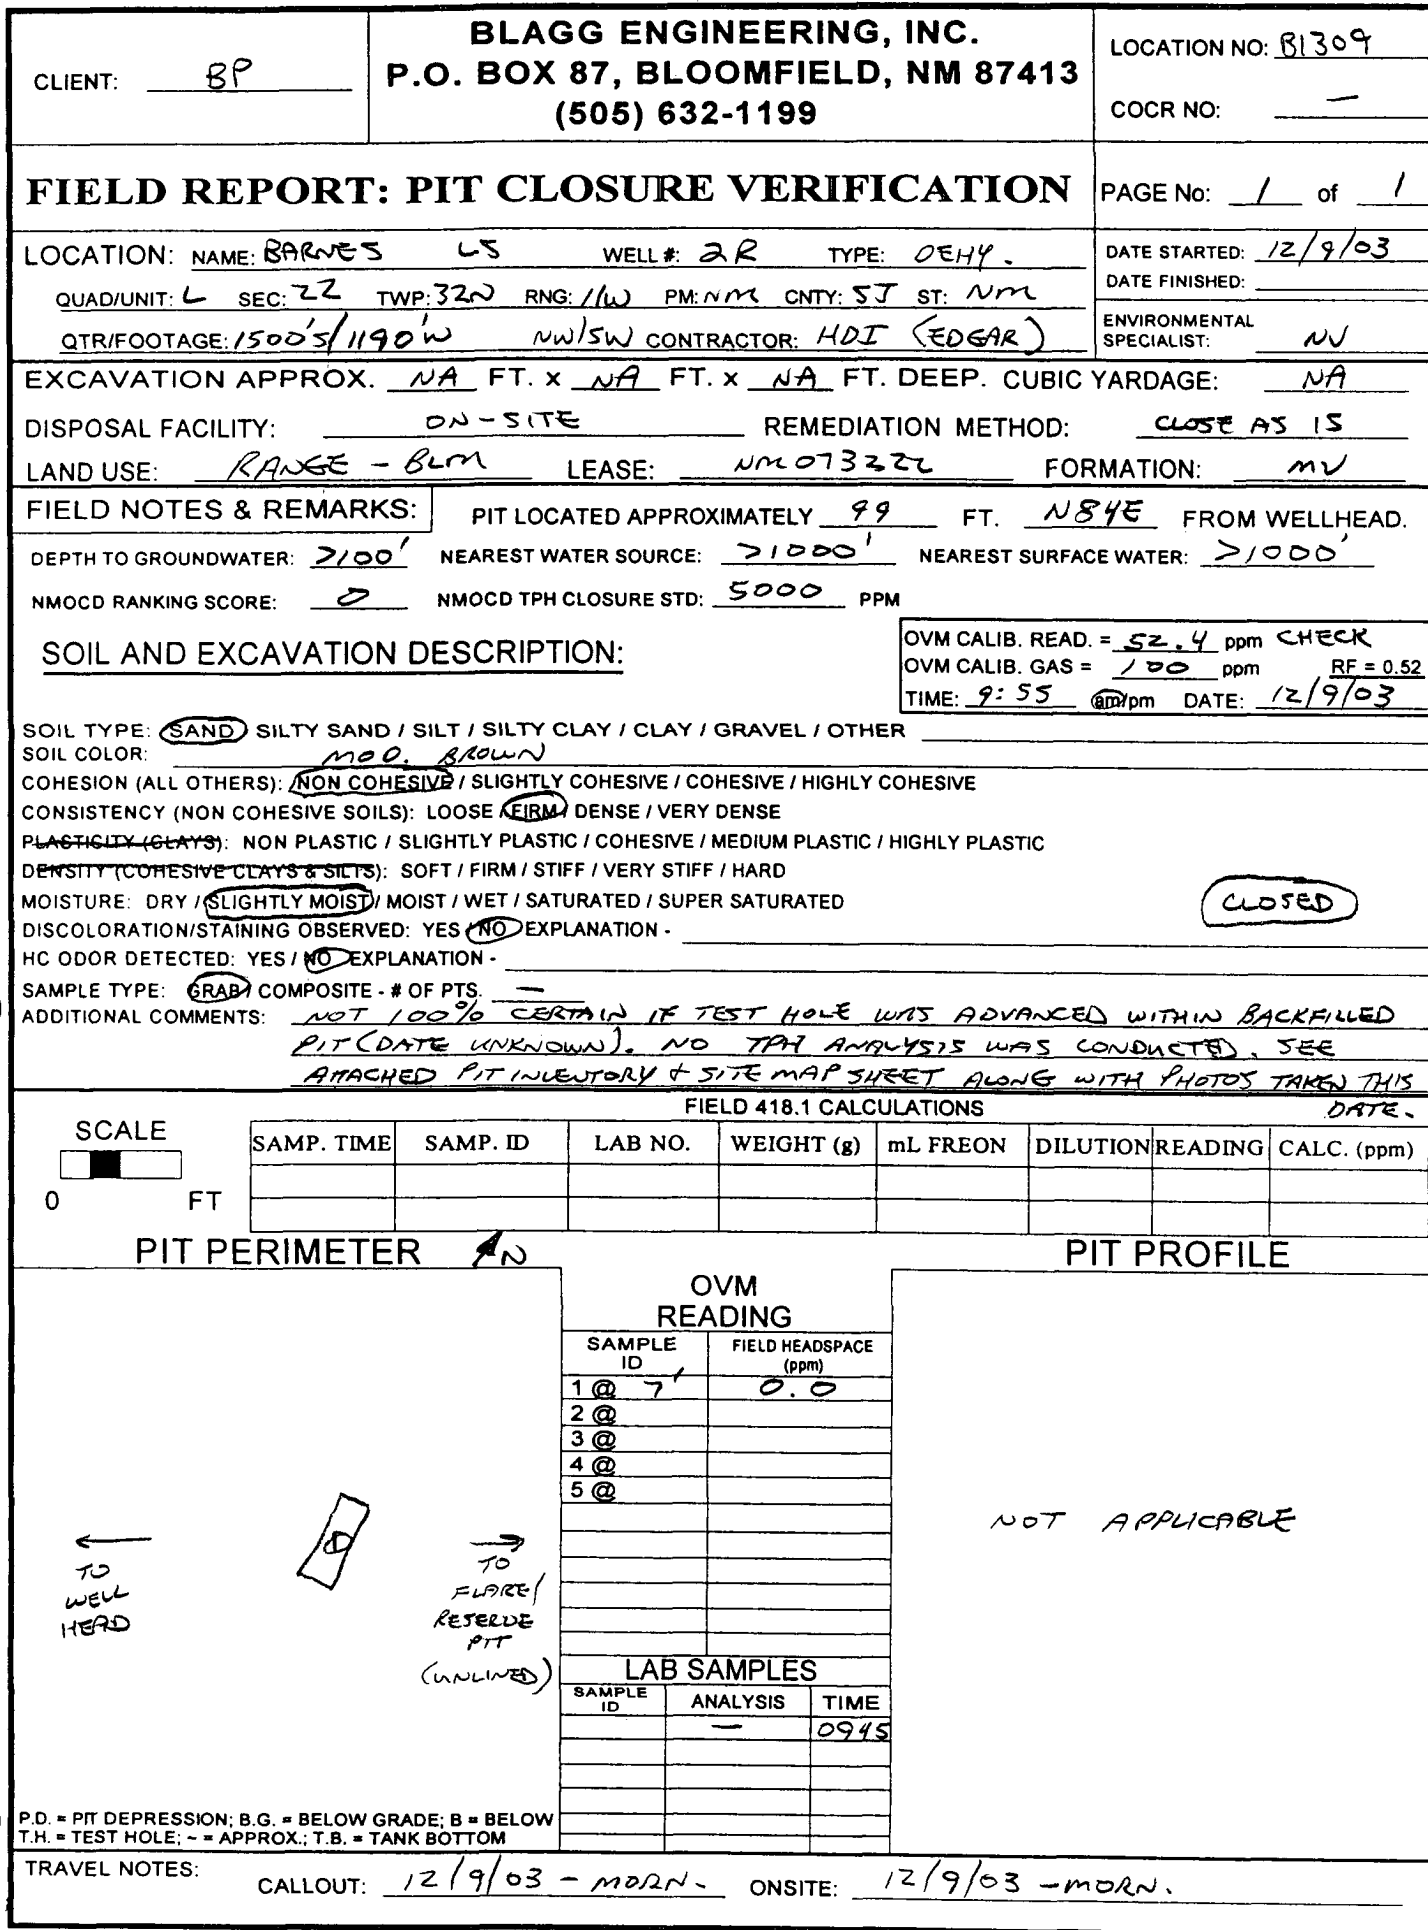 CLIENT: BP
BLAGG ENGINEERING, INC.
P.O. BOX 87, BLOOMFIELD, NM 87413
(505) 632-1199
LOCATION NO: B1309
COCR NO: —
FIELD REPORT: PIT CLOSURE VERIFICATION
PAGE No: 1 of 1
LOCATION: NAME: BARNES LS WELL #: 2R TYPE: DEHY.
QUAD/UNIT: L SEC: 22 TWP: 32N RNG: 11W PM: NM CNTY: SJ ST: NM
QTR/FOOTAGE: 1500'S/1190'W NW/SW CONTRACTOR: HDI (EDGAR)
DATE STARTED: 12/9/03
DATE FINISHED:
ENVIRONMENTAL
SPECIALIST: NV
EXCAVATION APPROX. NA FT. x NA FT. x NA FT. DEEP. CUBIC YARDAGE: NA
DISPOSAL FACILITY: ON-SITE REMEDIATION METHOD: CLOSE AS IS
LAND USE: RANGE - BLM LEASE: NM073222 FORMATION: MV
FIELD NOTES & REMARKS: PIT LOCATED APPROXIMATELY 99 FT. N84E FROM WELLHEAD.
DEPTH TO GROUNDWATER: >100' NEAREST WATER SOURCE: >1000' NEAREST SURFACE WATER: >1000'
NMOCD RANKING SCORE: 0 NMOCD TPH CLOSURE STD: 5000 PPM
SOIL AND EXCAVATION DESCRIPTION:
OVM CALIB. READ. = 52.4 ppm CHECK
OVM CALIB. GAS = 100 ppm RF = 0.52
TIME: 9:55 am/pm DATE: 12/9/03
SOIL TYPE: SAND / SILTY SAND / SILT / SILTY CLAY / CLAY / GRAVEL / OTHER
SOIL COLOR: MOD. BROWN
COHESION (ALL OTHERS): NON COHESIVE / SLIGHTLY COHESIVE / COHESIVE / HIGHLY COHESIVE
CONSISTENCY (NON COHESIVE SOILS): LOOSE / FIRM / DENSE / VERY DENSE
PLASTICITY (CLAYS): NON PLASTIC / SLIGHTLY PLASTIC / COHESIVE / MEDIUM PLASTIC / HIGHLY PLASTIC
DENSITY (COHESIVE CLAYS & SILTS): SOFT / FIRM / STIFF / VERY STIFF / HARD
MOISTURE: DRY / SLIGHTLY MOIST / MOIST / WET / SATURATED / SUPER SATURATED
CLOSED
DISCOLORATION/STAINING OBSERVED: YES / NO EXPLANATION -
HC ODOR DETECTED: YES / NO EXPLANATION -
SAMPLE TYPE: GRAB / COMPOSITE - # OF PTS. —
ADDITIONAL COMMENTS: NOT 100% CERTAIN IF TEST HOLE WAS ADVANCED WITHIN BACKFILLED
PIT (DATE UNKNOWN). NO TPH ANALYSIS WAS CONDUCTED. SEE
ATTACHED PIT INVENTORY & SITE MAP SHEET ALONG WITH PHOTOS TAKEN THIS
DATE.
FIELD 418.1 CALCULATIONS
SCALE
0 FT
SAMP. TIME SAMP. ID LAB NO. WEIGHT (g) mL FREON DILUTION READING CALC. (ppm)
PIT PERIMETER N
PIT PROFILE
OVM
READING
SAMPLE
ID
FIELD HEADSPACE
(ppm)
1 @ 7' 0.0
2 @
3 @
4 @
5 @
TO
WELL
HEAD
1
TO
FLARE/
RESERVE
PIT
(UNLINED)
NOT APPLICABLE
LAB SAMPLES
SAMPLE
ID
ANALYSIS TIME
— 0945
P.D. = PIT DEPRESSION; B.G. = BELOW GRADE; B = BELOW
T.H. = TEST HOLE; ~ = APPROX.; T.B. = TANK BOTTOM
TRAVEL NOTES:
CALLOUT: 12/9/03 - MORN. ONSITE: 12/9/03 - MORN.